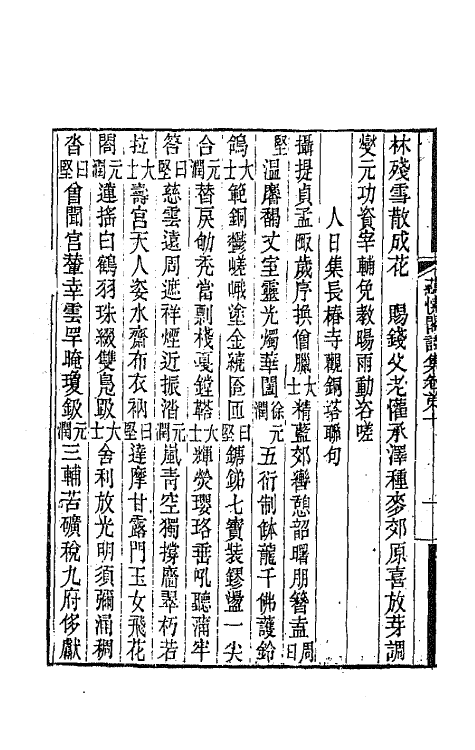 林殘雪散成花　賜錢父老懽承澤種麥郊原喜放芽調
燮元功資宰輔免教暘雨動咨嗟
人日集長椿寺觀銅塔聯句
攝提貞孟陬歲序換僧臘大士精藍郊轡憩韶曙朋簪盍周曰
堅溫黁馣丈室靈光燭華闥徐元潤五衍制鉢龍千佛護鈴
鴿大士範銅鬱嵯峨塗金繞匼匝曰堅鎕銻七寶裝鏐盪一尖
合元潤替戾劬禿當剽棧戛鏜鞳大士輝熒瓔珞垂吼聽蒲牢
答曰堅慈雲遠周遮祥煙近振元潤嵐靑空獨撐翠朽若
拉大士壽宮天人姿水齋布衣衲曰堅達摩甘露門玉女飛花
閤元潤蓮搖白鶴羽珠綴雙鳧趿大士舍利放光明須彌涌稠
沓曰堅曾聞宮輦幸雲罕晻瓊鈒元潤三輔苦礦稅九府侈獻
懷閣詩集卷第